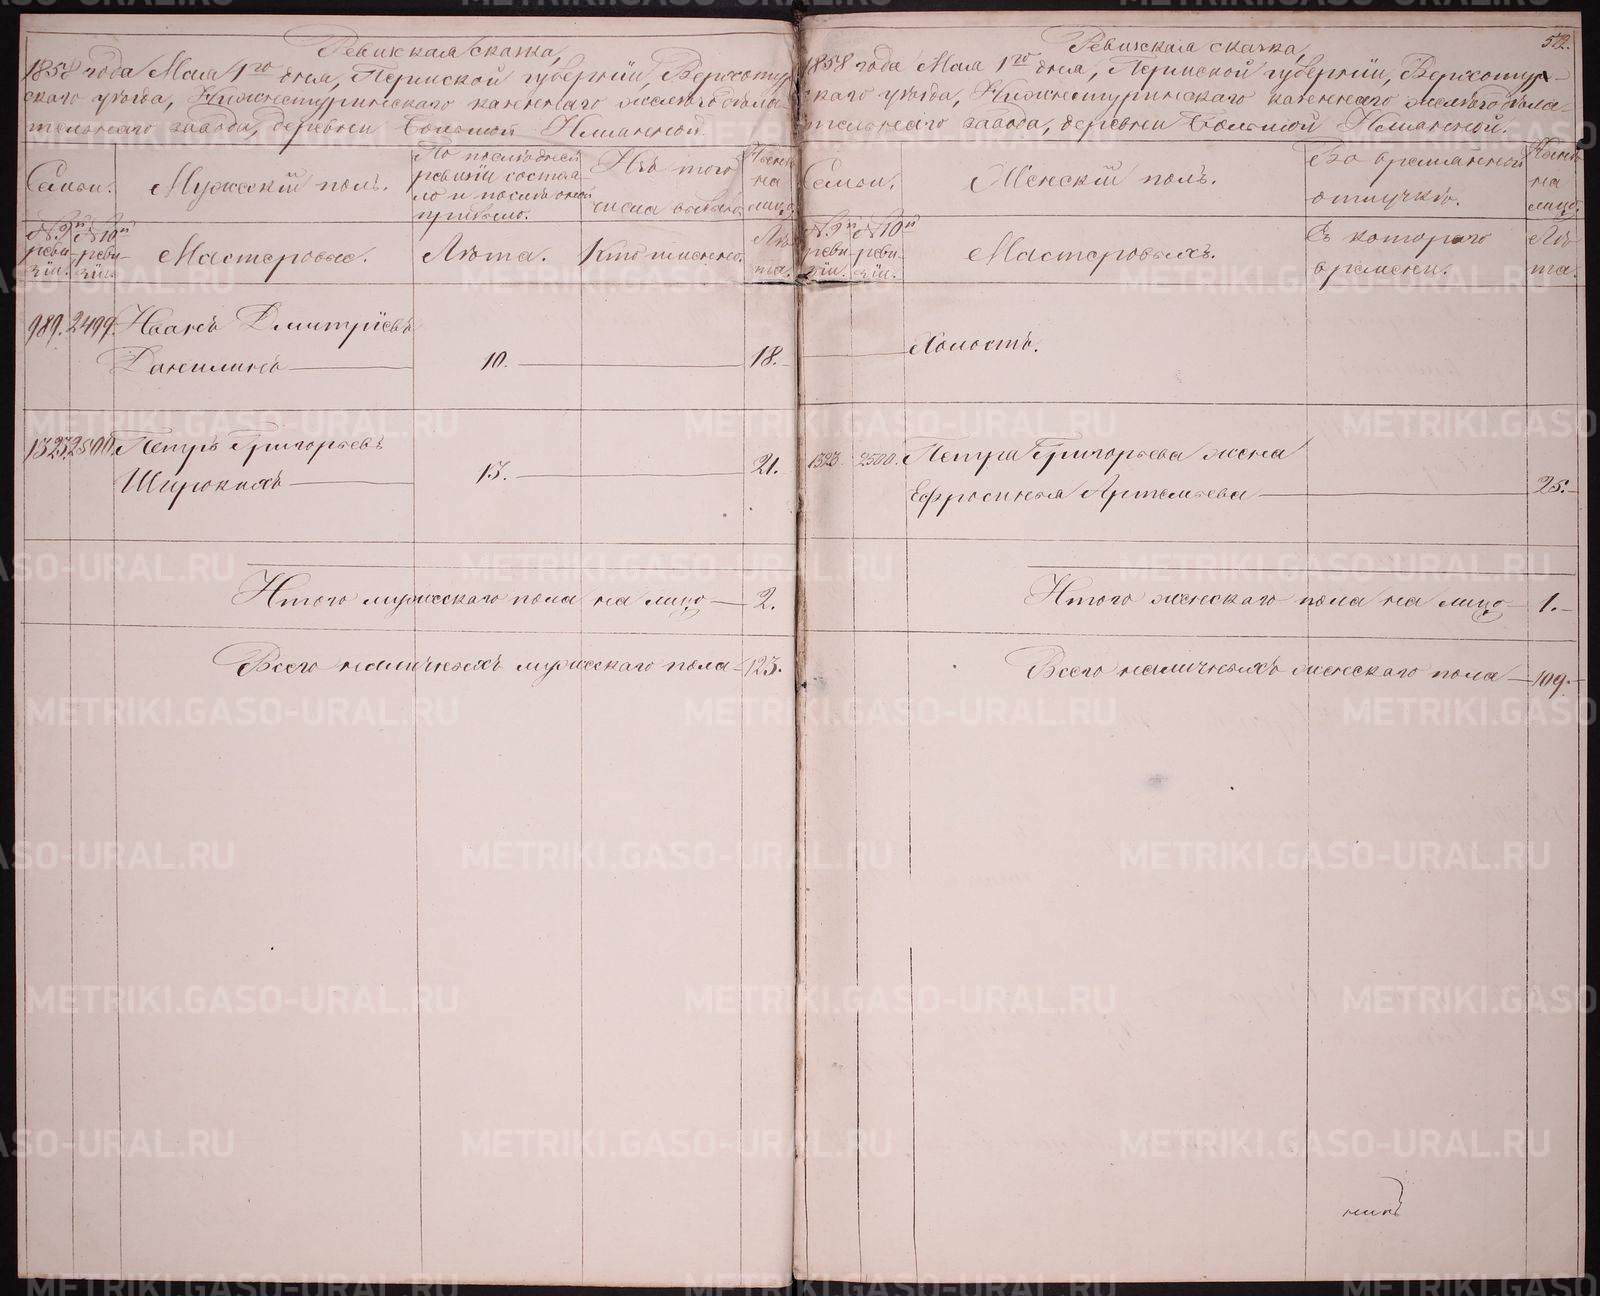 Ревизская сказка,
1858 года Мая 1го дня, Пермской губернiи, Верхотур-
скаго уѣзда, Нижнетуринскаго казеннаго желѣзодѣла-
тельнаго завода, деревни Большой Именной.
Семьи.
Мужескiй полъ.
По послѣдней
ревизiи состоя-
ло и послѣ оной
прибыло.
Изъ того
числа выбыло.
Нынѣ
на
лицо.
№ 9й
реви-
зiи.
№ 10й
реви-
зiи.
Мастеровые.
Лѣта.
Кто именно.
Лѣ-
та.
989. 2499. Иванъ Дмитрiевъ
Данилинъ 10. 18.
1323. 2500. Петръ Григорьевъ
Широкихъ 13. 21.
Итого мужескаго пола на лицо 2.
Всего наличныхъ мужескаго пола 123.
512.
Ревизская сказка,
1858 года Мая 1го дня, Пермской губернiи, Верхотур-
скаго уѣзда, Нижнетуринскаго казеннаго желѣзодѣла-
тельнаго завода, деревни Большой Именной.
Семьи.
Женскiй полъ.
Во временной
отлучкѣ.
Нынѣ
на
лицо.
№ 9й
реви-
зiи.
№ 10й
реви-
зiи.
Мастеровыхъ.
Съ котораго
времени.
Лѣ-
та.
Холостъ.
1323. 2500. Петра Григорьева жена
Ефросинья Артемьева 25.
Итого женскаго пола на лицо 1.
Всего наличныхъ женскаго пола 109.
METRIKI.GASO-URAL.RU